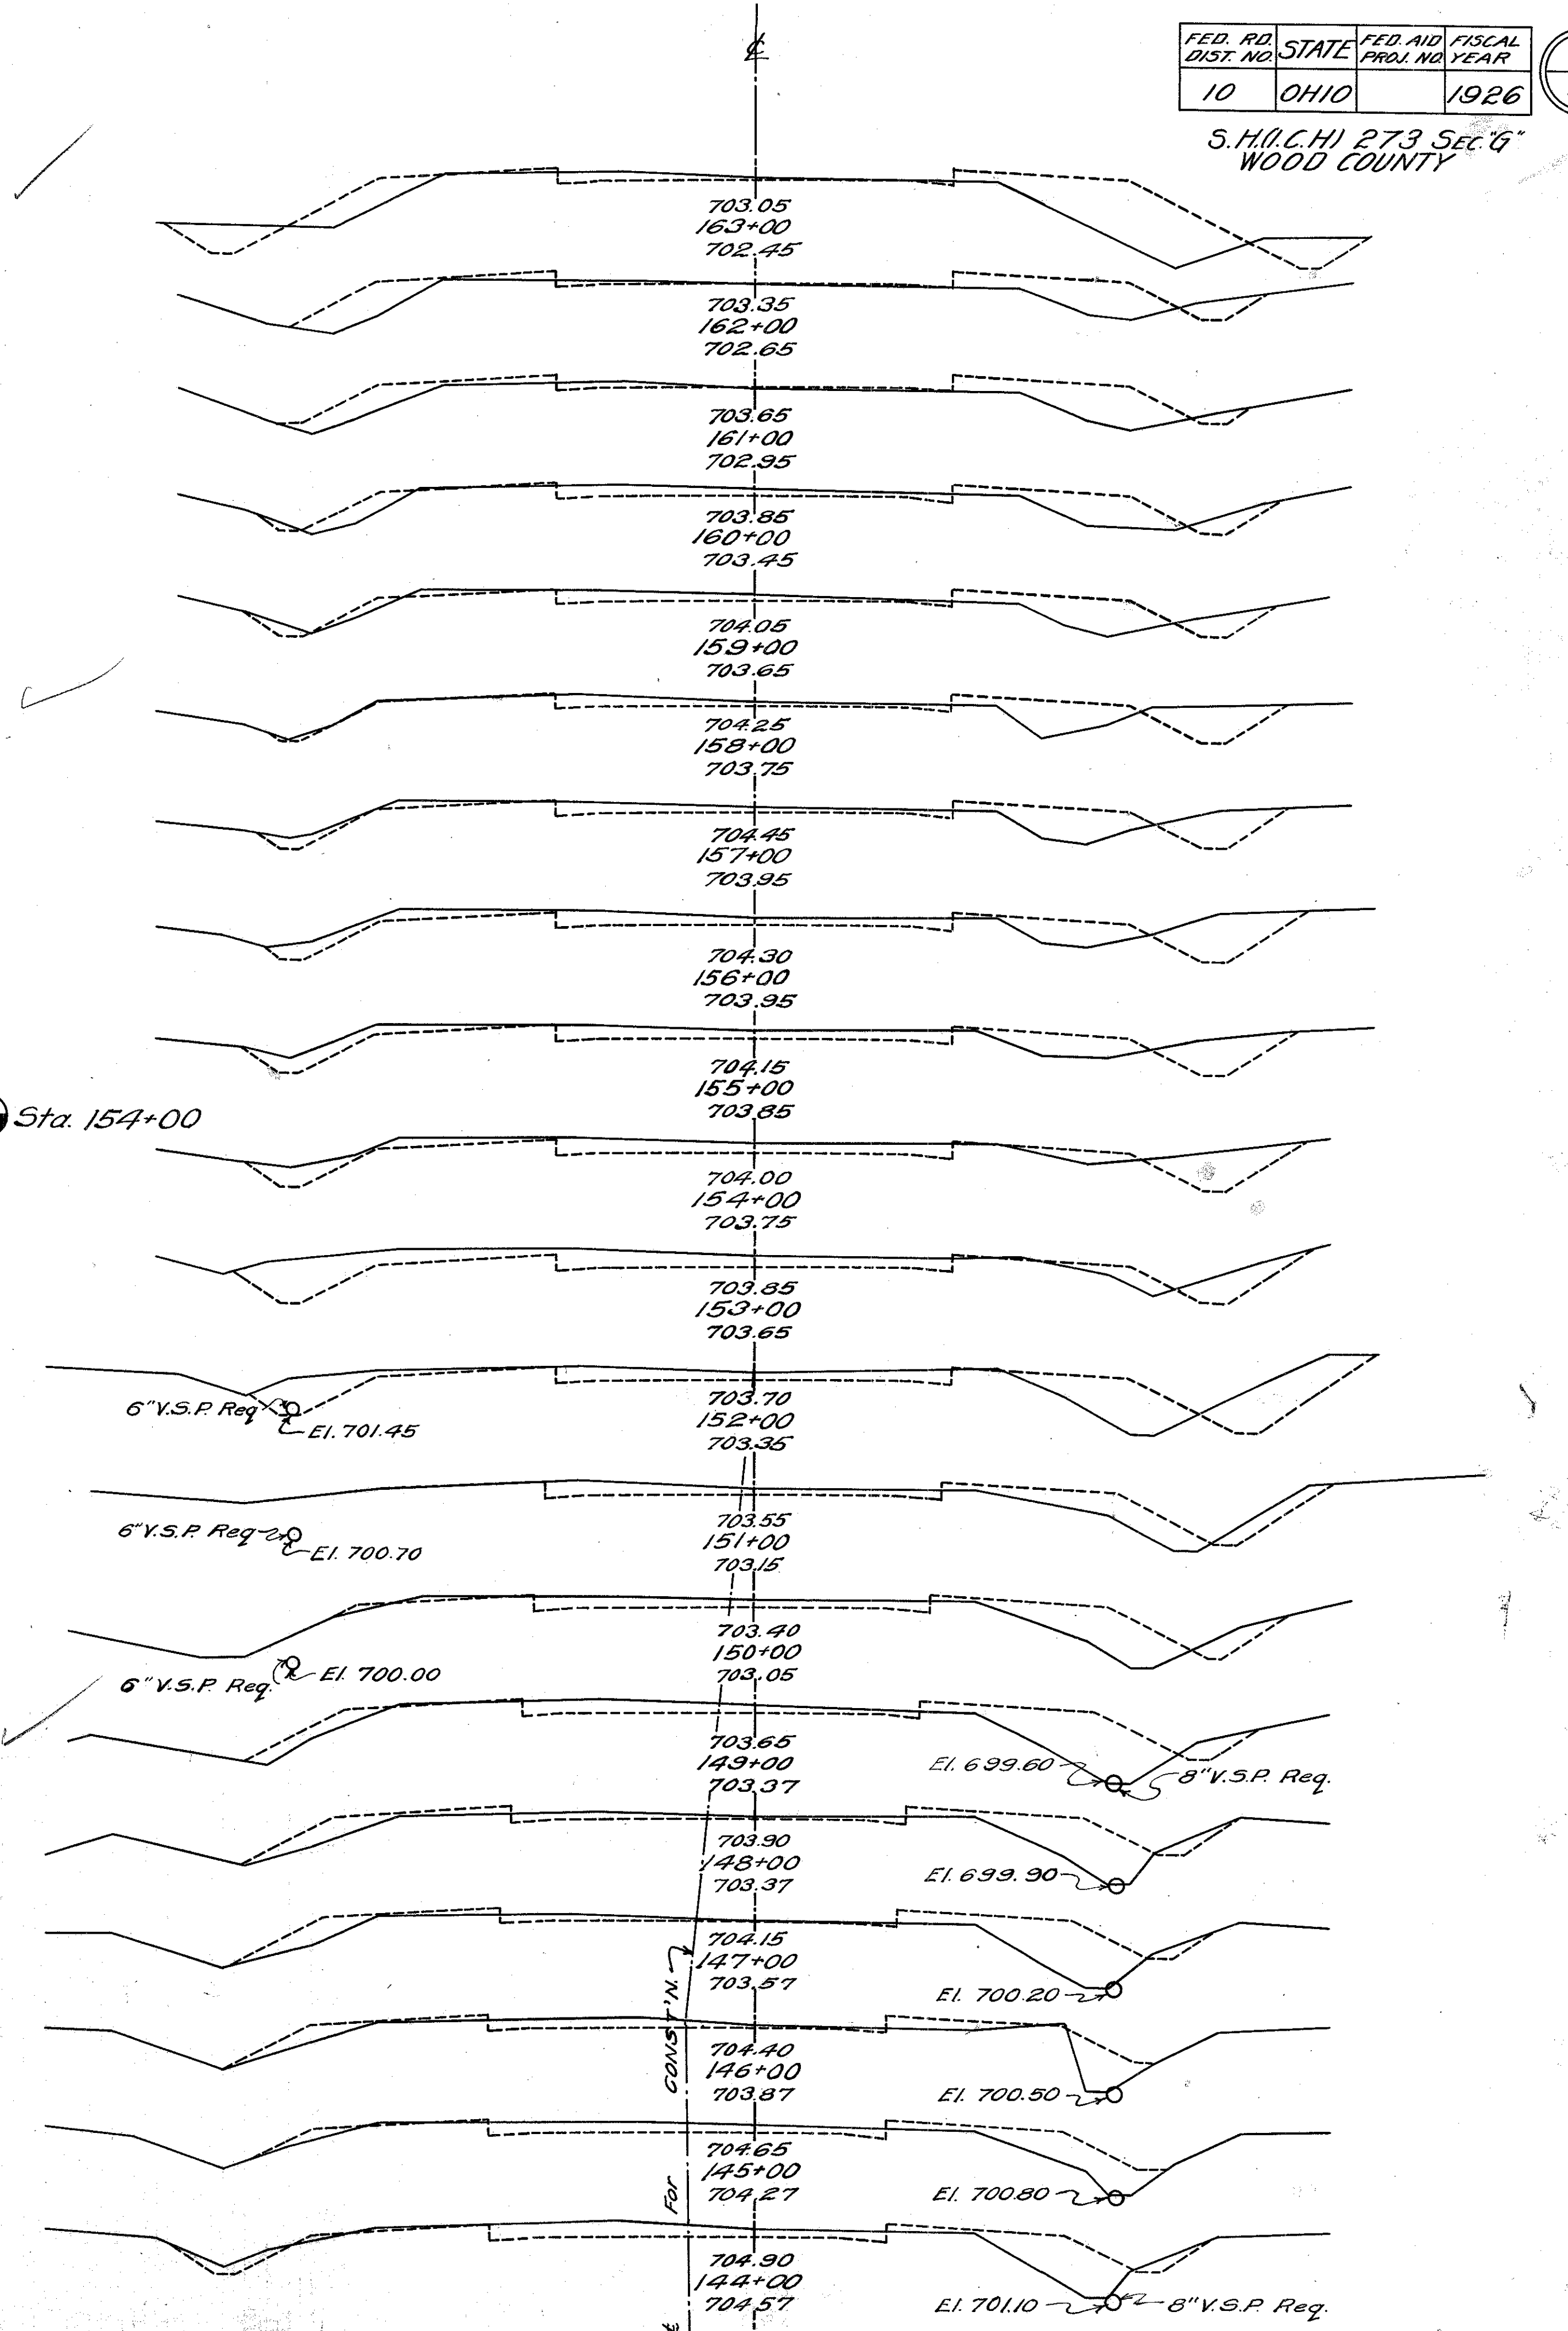 ℄
FED. RD. DIST. NO. STATE FED. AID PROJ. NO. FISCAL YEAR
10 OHIO 1926
S.H.(I.C.H) 273 SEC."G"
WOOD COUNTY
703.05
163+00
702.45
703.35
162+00
702.65
703.65
161+00
702.95
703.85
160+00
703.45
704.05
159+00
703.65
704.25
158+00
703.75
704.45
157+00
703.95
704.30
156+00
703.95
704.15
155+00
703.85
Sta. 154+00
704.00
154+00
703.75
703.85
153+00
703.65
703.70
6"V.S.P. Req
152+00
El. 701.45
703.35
703.55
6"V.S.P. Req
151+00
El. 700.70
703.15
703.40
150+00
6"V.S.P. Req.
El. 700.00
703.05
703.65
149+00
El. 699.60
8"V.S.P. Req.
703.37
703.90
148+00
El. 699.90
703.37
704.15
147+00
703.57
El. 700.20
CONST'N.
704.40
146+00
703.87
El. 700.50
704.65
145+00
For
704.27
El. 700.80
704.90
144+00
704.57
El. 701.10
8"V.S.P. Req.